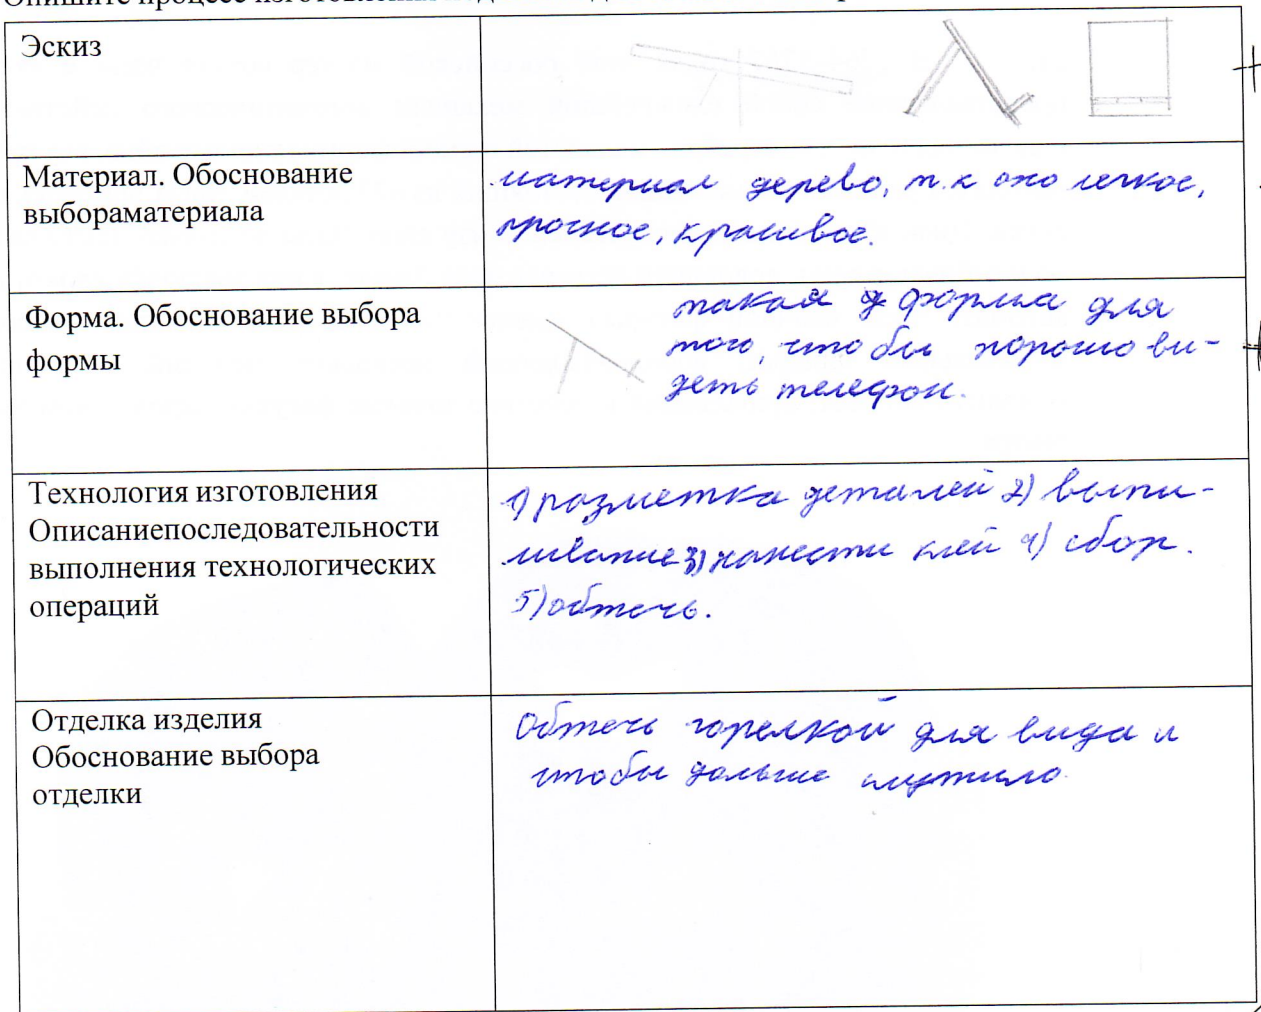 Эскиз
Материал. Обоснование
выбораматериала
материал дерево, т.к оно легкое,
прочное, красивое.
Форма. Обоснование выбора
формы
такая форма для
того, чтобы хорошо ви-
деть телефон.
Технология изготовления
Описаниепоследовательности
выполнения технологических
операций
1) разметка деталей 2) выпи-
ливание 3) нанести клей 4) сбор.
5) обжечь.
Отделка изделия
Обоснование выбора
отделки
Обжечь горелкой для вида и
чтобы дольше служило